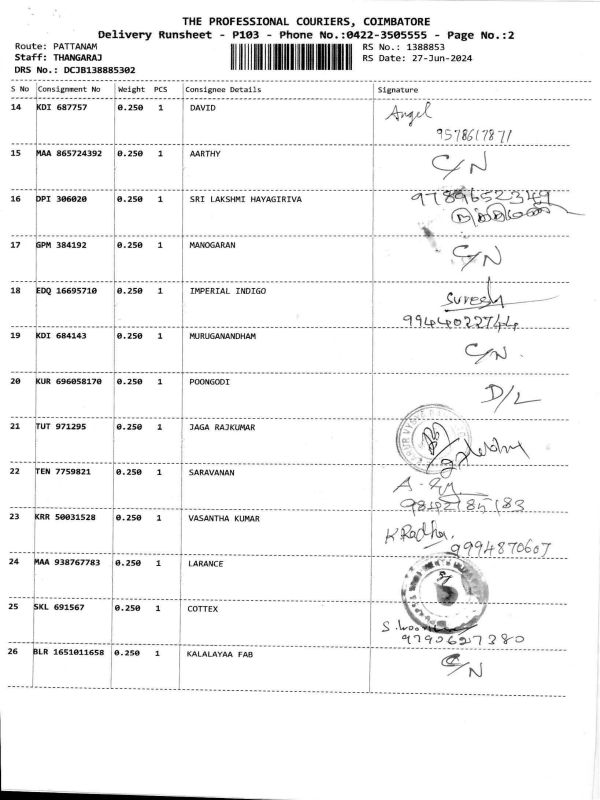 THE PROFESSIONAL COURIERS, COIMBATORE
Delivery Runsheet - P103 - Phone No.:0422-3505555 - Page No.:2
Route: PATTANAM RS No.: 1388853
Staff: THANGARAJ RS Date: 27-Jun-2024
DRS No.: DCJB138885302
S No Consignment No Weight PCS Consignee Details Signature
14 KDI 687757 0.250 1 DAVID Angel
9578617871
15 MAA 865724392 0.250 1 AARTHY C/N
16 DPI 306020 0.250 1 SRI LAKSHMI HAYAGIRIVA
17 GPM 384192 0.250 1 MANOGARAN C/N
18 EDQ 16695710 0.250 1 IMPERIAL INDIGO Suresh
9944022744
19 KDI 684143 0.250 1 MURUGANANDHAM C/N
20 KUR 696058170 0.250 1 POONGODI D/L
21 TUT 971295 0.250 1 JAGA RAJKUMAR
22 TEN 7759821 0.250 1 SARAVANAN
9842185183
23 KRR 50031528 0.250 1 VASANTHA KUMAR K Radha
9994870607
24 MAA 938767783 0.250 1 LARANCE
25 SKL 691567 0.250 1 COTTEX
9790627380
26 BLR 1651011658 0.250 1 KALALAYAA FAB C/N